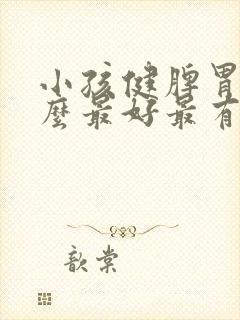 小孩健脾胃
麼最好最有
歆棠